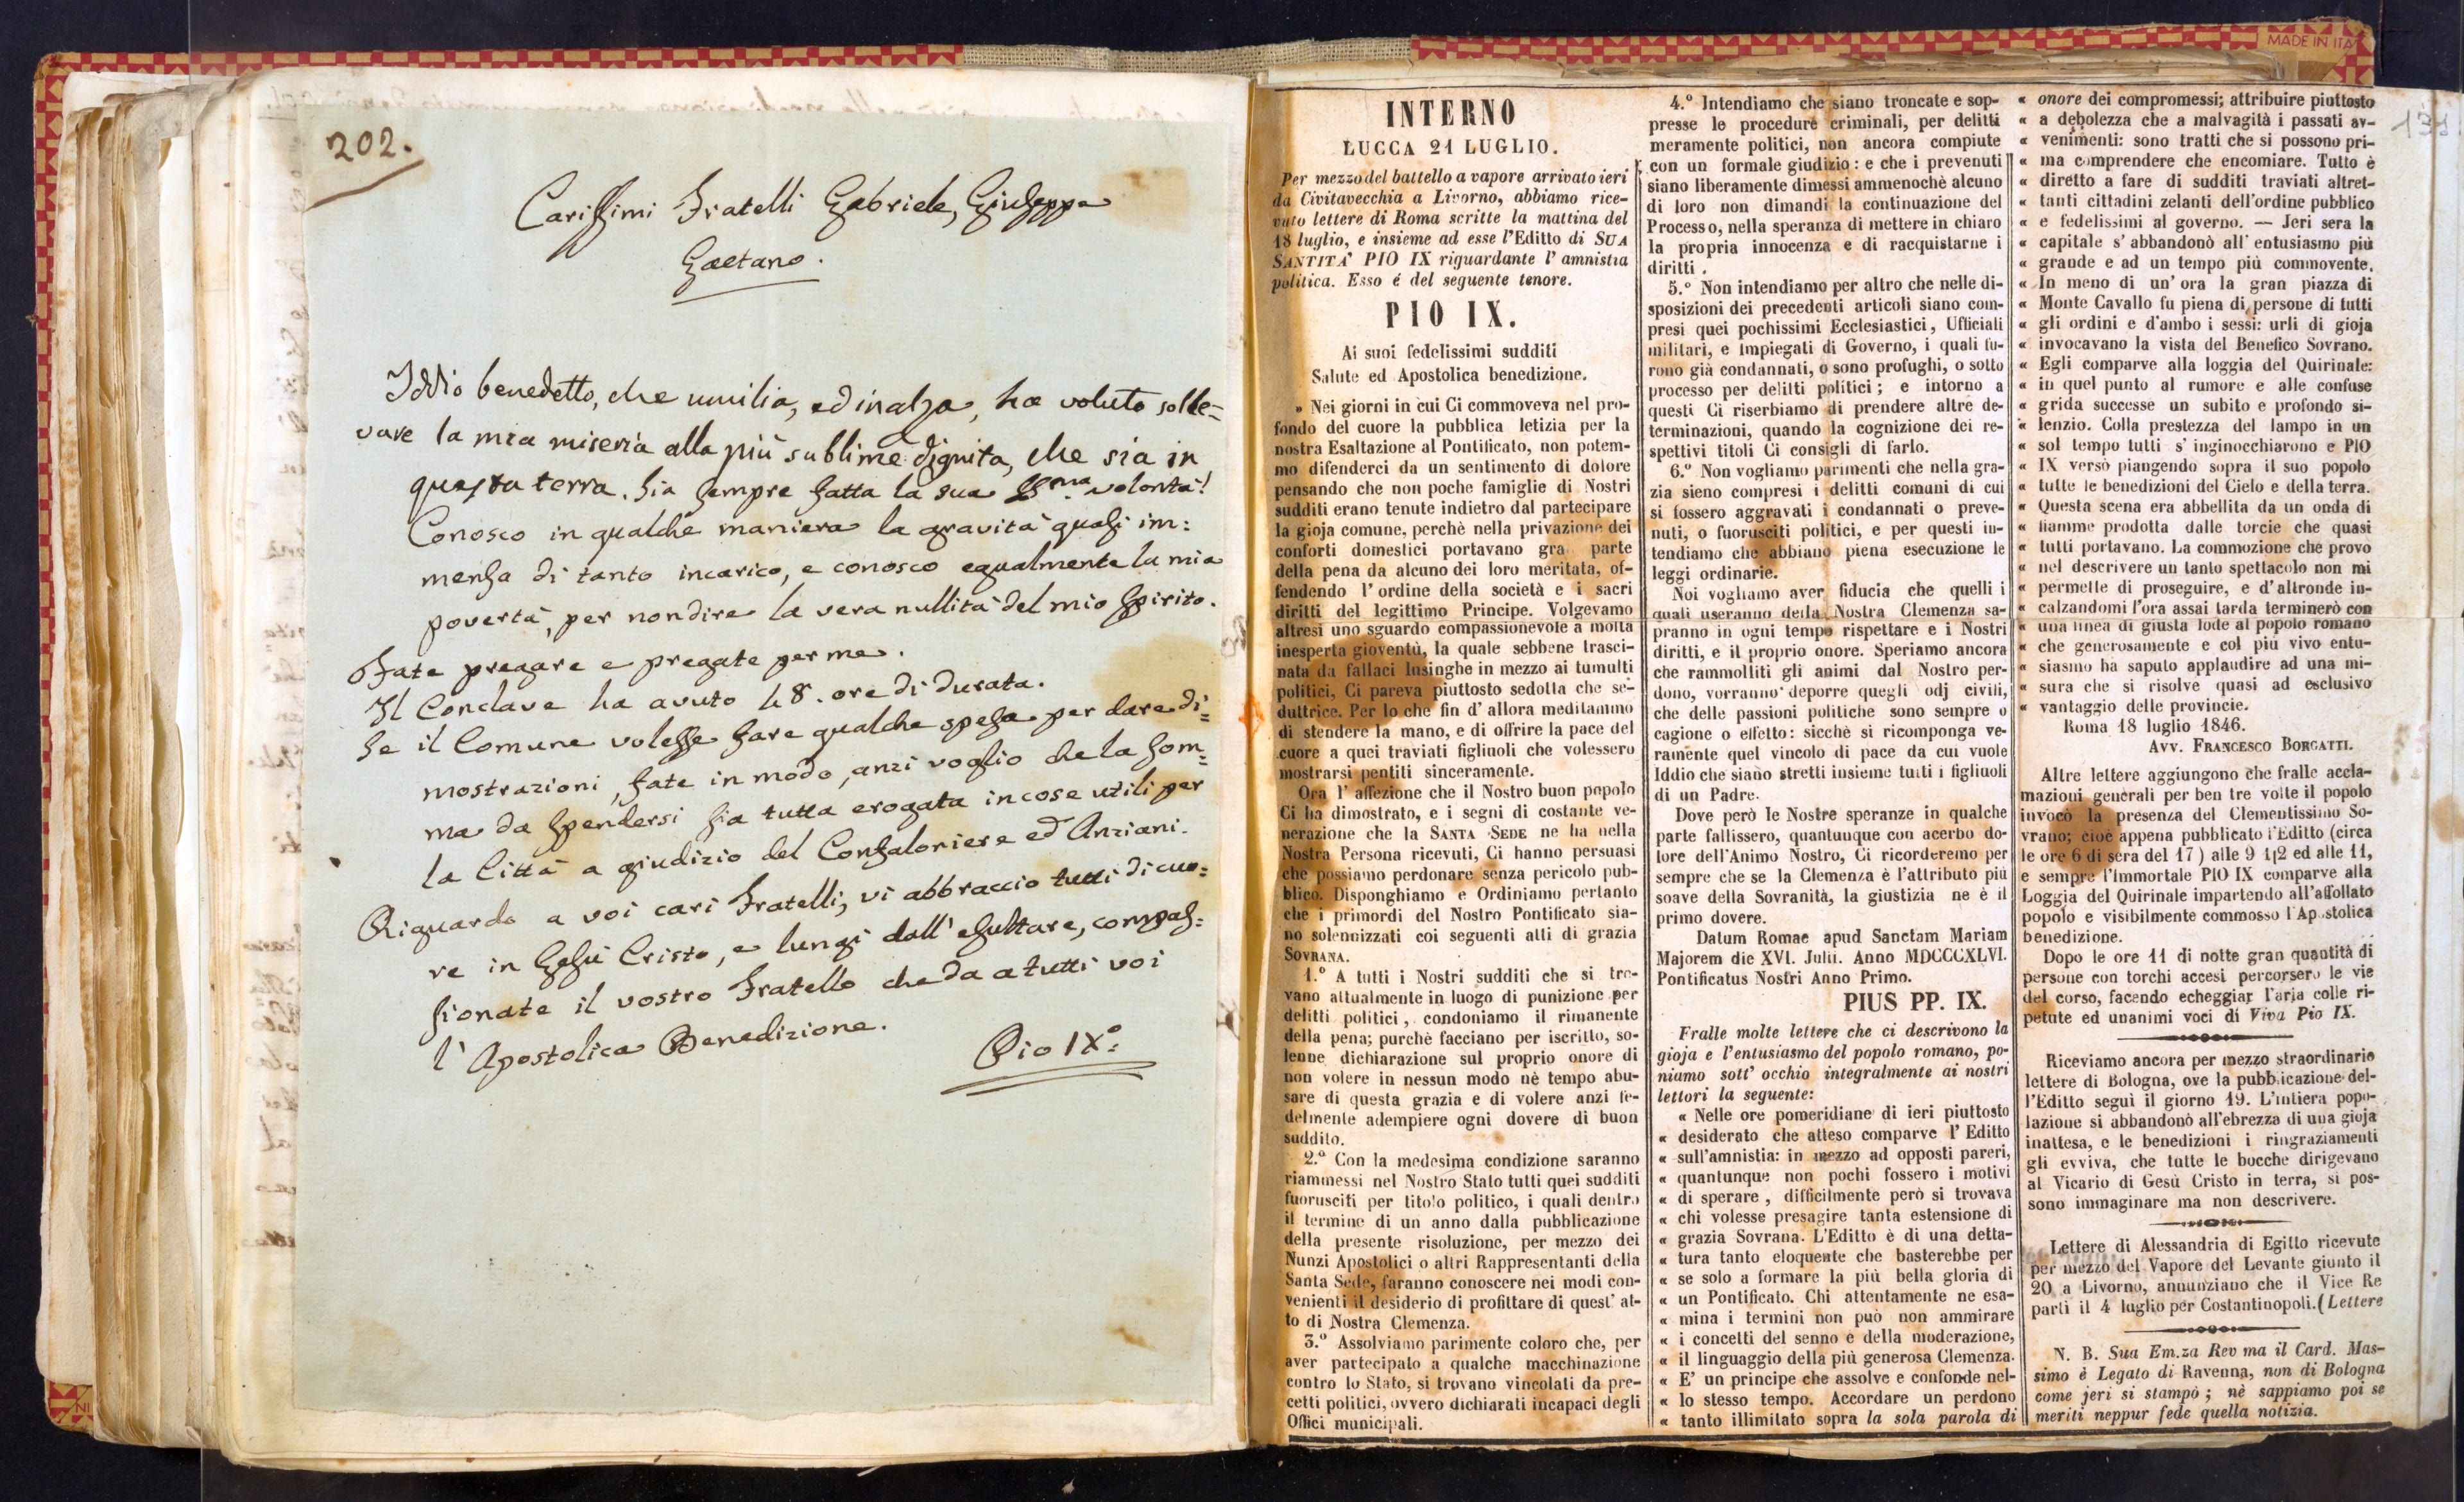 202.
Carissimi Fratelli Gabriele, Giuseppe
Gaetano.
Iddio benedetto, che umilia, ed inalza, ha voluto solle=
vare la mia miseria alla più sublime dignita, che sia in
questa terra. Sia sempre fatta la sua SSma. volontà!
Conosco in qualche maniera la gravità quasi im:
mensa di tanto incarico, e conosco egualmente la mia
povertà, per non dire la vera nullità del mio spirito.
Fate pregare e pregate per me.
Il Conclave ha avuto 48. ore di durata.
Se il Comune volesse fare qualche spesa per dare di=
mostrazioni, fate in modo, anzi voglio che la som=
ma da spendersi sia tutta erogata in cose utili per
la Città a giudizio del Confaloniere ed Anziani.
Riguardo a voi cari Fratelli, vi abbraccio tutti di cuo=
re in Gesù Cristo, e lungi dall'esultare, compas=
sionate il vostro Fratello che da a tutti voi
l'Apostolica Benedizione.
Pio IXº:
MADE IN ITA
INTERNO
LUCCA 21 LUGLIO.
Per mezzo del battello a vapore arrivato ieri
da Civitavecchia a Livorno, abbiamo rice-
vuto lettere di Roma scritte la mattina del
18 luglio, e insieme ad esse l'Editto di SUA
SANTITA' PIO IX riguardante l'amnistia
politica. Esso é del seguente tenore.
PIO IX.
Ai suoi fedelissimi sudditi
Salute ed Apostolica benedizione.
» Nei giorni in cui Ci commoveva nel pro-
fondo del cuore la pubblica letizia per la
nostra Esaltazione al Pontificato, non potem-
mo difenderci da un sentimento di dolore
pensando che non poche famiglie di Nostri
sudditi erano tenute indietro dal partecipare
la gioja comune, perchè nella privazione dei
conforti domestici portavano gra parte
della pena da alcuno dei loro meritata, of-
fendendo l'ordine della società e i sacri
diritti del legittimo Principe. Volgevamo
altresì uno sguardo compassionevole a molta
inesperta gioventù, la quale sebbene trasci-
nata da fallaci lusinghe in mezzo ai tumulti
politici, Ci pareva piuttosto sedotta che se-
duttrice. Per lo che fin d'allora meditammo
di stendere la mano, e di offrire la pace del
cuore a quei traviati figliuoli che volessero
mostrarsi pentiti sinceramente.
Ora l'affezione che il Nostro buon popolo
Ci ha dimostrato, e i segni di costante ve-
nerazione che la SANTA SEDE ne ha nella
Nostra Persona ricevuti, Ci hanno persuasi
che possiamo perdonare senza pericolo pub-
blico. Disponghiamo e Ordiniamo pertanto
che i primordi del Nostro Pontificato sia-
no solennizzati coi seguenti atti di grazia
SOVRANA.
1.º A tutti i Nostri sudditi che si tro-
vano attualmente in luogo di punizione per
delitti politici, condoniamo il rimanente
della pena; purchè facciano per iscritto, so-
lenne dichiarazione sul proprio onore di
non volere in nessun modo nè tempo abu-
sare di questa grazia e di volere anzi fe-
delmente adempiere ogni dovere di buon
suddito.
2.º Con la medesima condizione saranno
riammessi nel Nostro Stato tutti quei sudditi
fuorusciti per titolo politico, i quali dentro
il termine di un anno dalla pubblicazione
della presente risoluzione, per mezzo dei
Nunzi Apostolici o altri Rappresentanti della
Santa Sede, faranno conoscere nei modi con-
venienti il desiderio di profittare di quest'at-
to di Nostra Clemenza.
3.º Assolviamo parimente coloro che, per
aver partecipato a qualche macchinazione
contro lo Stato, si trovano vincolati da pre-
cetti politici, ovvero dichiarati incapaci degli
Offici municipali.
4.º Intendiamo che siano troncate e sop-
presse le procedure criminali, per delitti
meramente politici, non ancora compiute
con un formale giudizio: e che i prevenuti
siano liberamente dimessi ammenochè alcuno
di loro non dimandi la continuazione del
Processo, nella speranza di mettere in chiaro
la propria innocenza e di racquistarne i
diritti.
5.º Non intendiamo per altro che nelle di-
sposizioni dei precedenti articoli siano com-
presi quei pochissimi Ecclesiastici, Ufficiali
militari, e Impiegati di Governo, i quali fu-
rono già condannati, o sono profughi, o sotto
processo per delitti politici; e intorno a
questi Ci riserbiamo di prendere altre de-
terminazioni, quando la cognizione dei re-
spettivi titoli Ci consigli di farlo.
6.º Non vogliamo parimenti che nella gra-
zia sieno compresi i delitti comuni di cui
si fossero aggravati i condannati o preve-
nuti, o fuorusciti politici, e per questi in-
tendiamo che abbiano piena esecuzione le
leggi ordinarie.
Noi vogliamo aver fiducia che quelli i
quali useranno della Nostra Clemenza sa-
pranno in ogni tempo rispettare e i Nostri
diritti, e il proprio onore. Speriamo ancora
che rammolliti gli animi dal Nostro per-
dono, vorranno deporre quegli odj civili,
che delle passioni politiche sono sempre o
cagione o effetto: sicchè si ricomponga ve-
ramente quel vincolo di pace da cui vuole
Iddio che siano stretti insieme tutti i figliuoli
di un Padre.
Dove però le Nostre speranze in qualche
parte fallissero, quantunque con acerbo do-
lore dell'Animo Nostro, Ci ricorderemo per
sempre che se la Clemenza è l'attributo più
soave della Sovranità, la giustizia ne è il
primo dovere.
Datum Romae apud Sanctam Mariam
Majorem die XVI. Julii. Anno MDCCCXLVI.
Pontificatus Nostri Anno Primo.
PIUS PP. IX.
Fralle molte lettere che ci descrivono la
gioja e l'entusiasmo del popolo romano, po-
niamo sott'occhio integralmente ai nostri
lettori la seguente:
« Nelle ore pomeridiane di ieri piuttosto
« desiderato che atteso comparve l'Editto
« sull'amnistia: in mezzo ad opposti pareri,
« quantunque non pochi fossero i motivi
« di sperare, difficilmente però si trovava
« chi volesse presagire tanta estensione di
« grazia Sovrana. L'Editto è di una detta-
« tura tanto eloquente che basterebbe per
« se solo a formare la più bella gloria di
« un Pontificato. Chi attentamente ne esa-
« mina i termini non può non ammirare
« i concetti del senno e della moderazione,
« il linguaggio della più generosa Clemenza.
« E' un principe che assolve e confonde nel-
« lo stesso tempo. Accordare un perdono
« tanto illimitato sopra la sola parola di
« onore dei compromessi; attribuire piuttosto
« a debolezza che a malvagità i passati av-
« venimenti: sono tratti che si possono pri-
« ma comprendere che encomiare. Tutto è
« diretto a fare di sudditi traviati altret-
« tanti cittadini zelanti dell'ordine pubblico
« e fedelissimi al governo. — Jeri sera la
« capitale s'abbandonò all'entusiasmo più
« grande e ad un tempo più commovente.
« In meno di un'ora la gran piazza di
« Monte Cavallo fu piena di persone di tutti
« gli ordini e d'ambo i sessi: urli di gioja
« invocavano la vista del Benefico Sovrano.
« Egli comparve alla loggia del Quirinale:
« in quel punto al rumore e alle confuse
« grida successe un subito e profondo si-
« lenzio. Colla prestezza del lampo in un
« sol tempo tutti s'inginocchiarono e PIO
« IX versò piangendo sopra il suo popolo
« tutte le benedizioni del Cielo e della terra.
« Questa scena era abbellita da un onda di
« fiamme prodotta dalle torcie che quasi
« tutti portavano. La commozione che provo
« nel descrivere un tanto spettacolo non mi
« permette di proseguire, e d'altronde in-
« calzandomi l'ora assai tarda terminerò con
« una linea di giusta lode al popolo romano
« che generosamente e col più vivo entu-
« siasmo ha saputo applaudire ad una mi-
« sura che si risolve quasi ad esclusivo
« vantaggio delle provincie.
Roma 18 luglio 1846.
Avv. FRANCESCO BORGATTI.
Altre lettere aggiungono che fralle accla-
mazioni generali per ben tre volte il popolo
invocò la presenza del Clementissimo So-
vrano; cioè appena pubblicato l'Editto (circa
le ore 6 di sera del 17) alle 9 1/2 ed alle 11,
e sempre l'Immortale PIO IX comparve alla
Loggia del Quirinale impartendo all'affollato
popolo e visibilmente commosso l'Apostolica
benedizione.
Dopo le ore 11 di notte gran quantità di
persone con torchi accesi percorsero le vie
del corso, facendo echeggiar l'aria colle ri-
petute ed unanimi voci di Viva Pio IX.
Riceviamo ancora per mezzo straordinario
lettere di Bologna, ove la pubblicazione del-
l'Editto seguì il giorno 19. L'intiera popo-
lazione si abbandonò all'ebrezza di una gioja
inattesa, e le benedizioni i ringraziamenti
gli evviva, che tutte le bocche dirigevano
al Vicario di Gesù Cristo in terra, si pos-
sono immaginare ma non descrivere.
Lettere di Alessandria di Egitto ricevute
per mezzo del Vapore del Levante giunto il
20 a Livorno, annunziano che il Vice Re
partì il 4 luglio per Costantinopoli. (Lettere
N. B. Sua Em.za Rev ma il Card. Mas-
simo è Legato di Ravenna, non di Bologna
come jeri si stampò; nè sappiamo poi se
meriti neppur fede quella notizia.